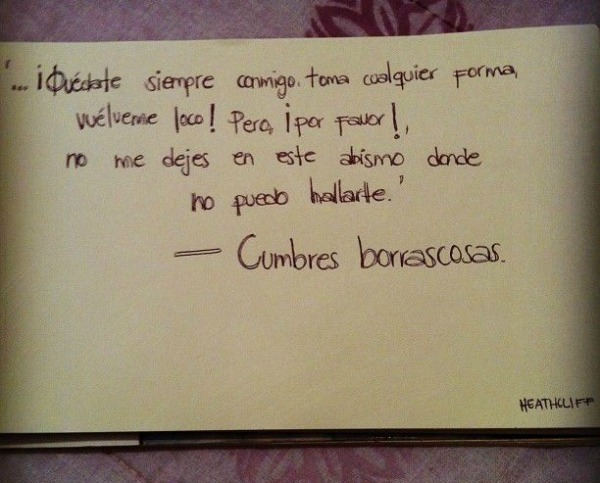 '...¡Quédate siempre conmigo. toma cualquier forma,
vuélveme loco! Pero, ¡por favor!,
no me dejes en este abismo donde
no puedo hallarte.'
— Cumbres borrascosas.
HEATHCLIFF